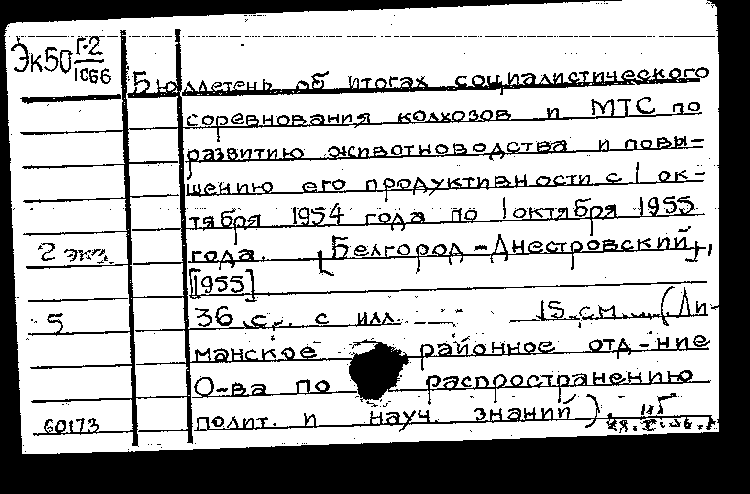 Эк50 Г-2
1066
Бюллетень об итогах социалистического
соревнования колхозов и МТС по
развитию животноводства и повы-
шению его продуктивности с 1 ок-
тября 1954 года по 1 октября 1955
2 экз. года. [Белгород-Днестровский],
[1955]
5 36 с. с илл. 15 см. (Ли-
манское районное отд-ние
О-ва по распространению
60173 полит. и науч. знаний).